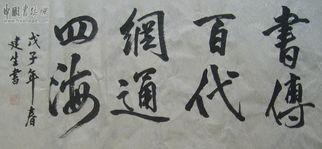 書傳
百代
網通
四海
戊子年春
建生書
中國書法網